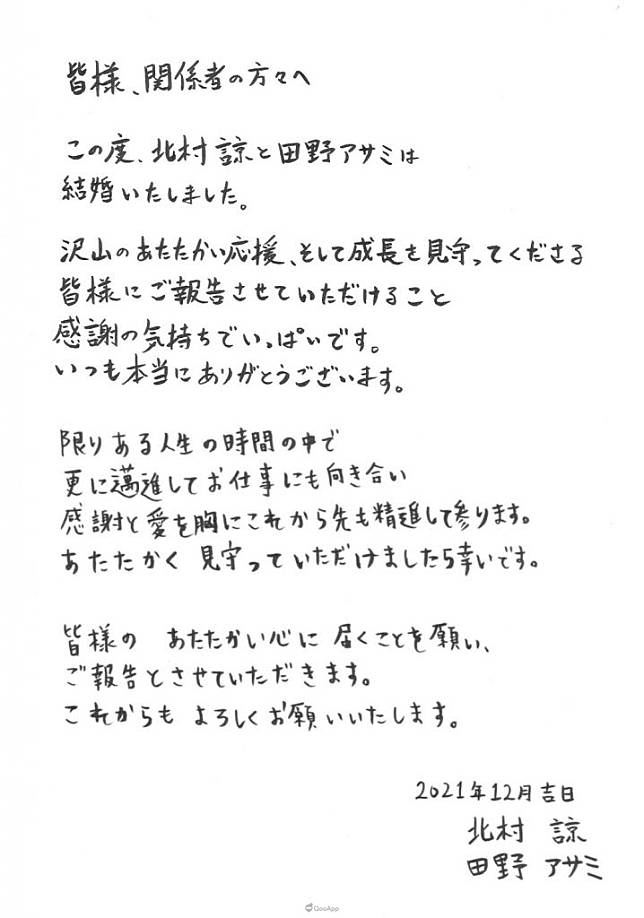 皆様、関係者の方々へ
この度、北村諒と田野アサミは
結婚いたしました。
沢山のあたたかい応援、そして成長を見守ってくださる
皆様にご報告させていただけること
感謝の気持ちでいっぱいです。
いつも本当にありがとうございます。
限りある人生の時間の中で
更に邁進してお仕事にも向き合い
感謝と愛を胸にこれから先も精進して参ります。
あたたかく見守っていただけましたら幸いです。
皆様の あたたかい心に届くことを願い、
ご報告とさせていただきます。
これからも よろしくお願いいたします。
2021年12月吉日
北村 諒
田野 アサミ
QooApp